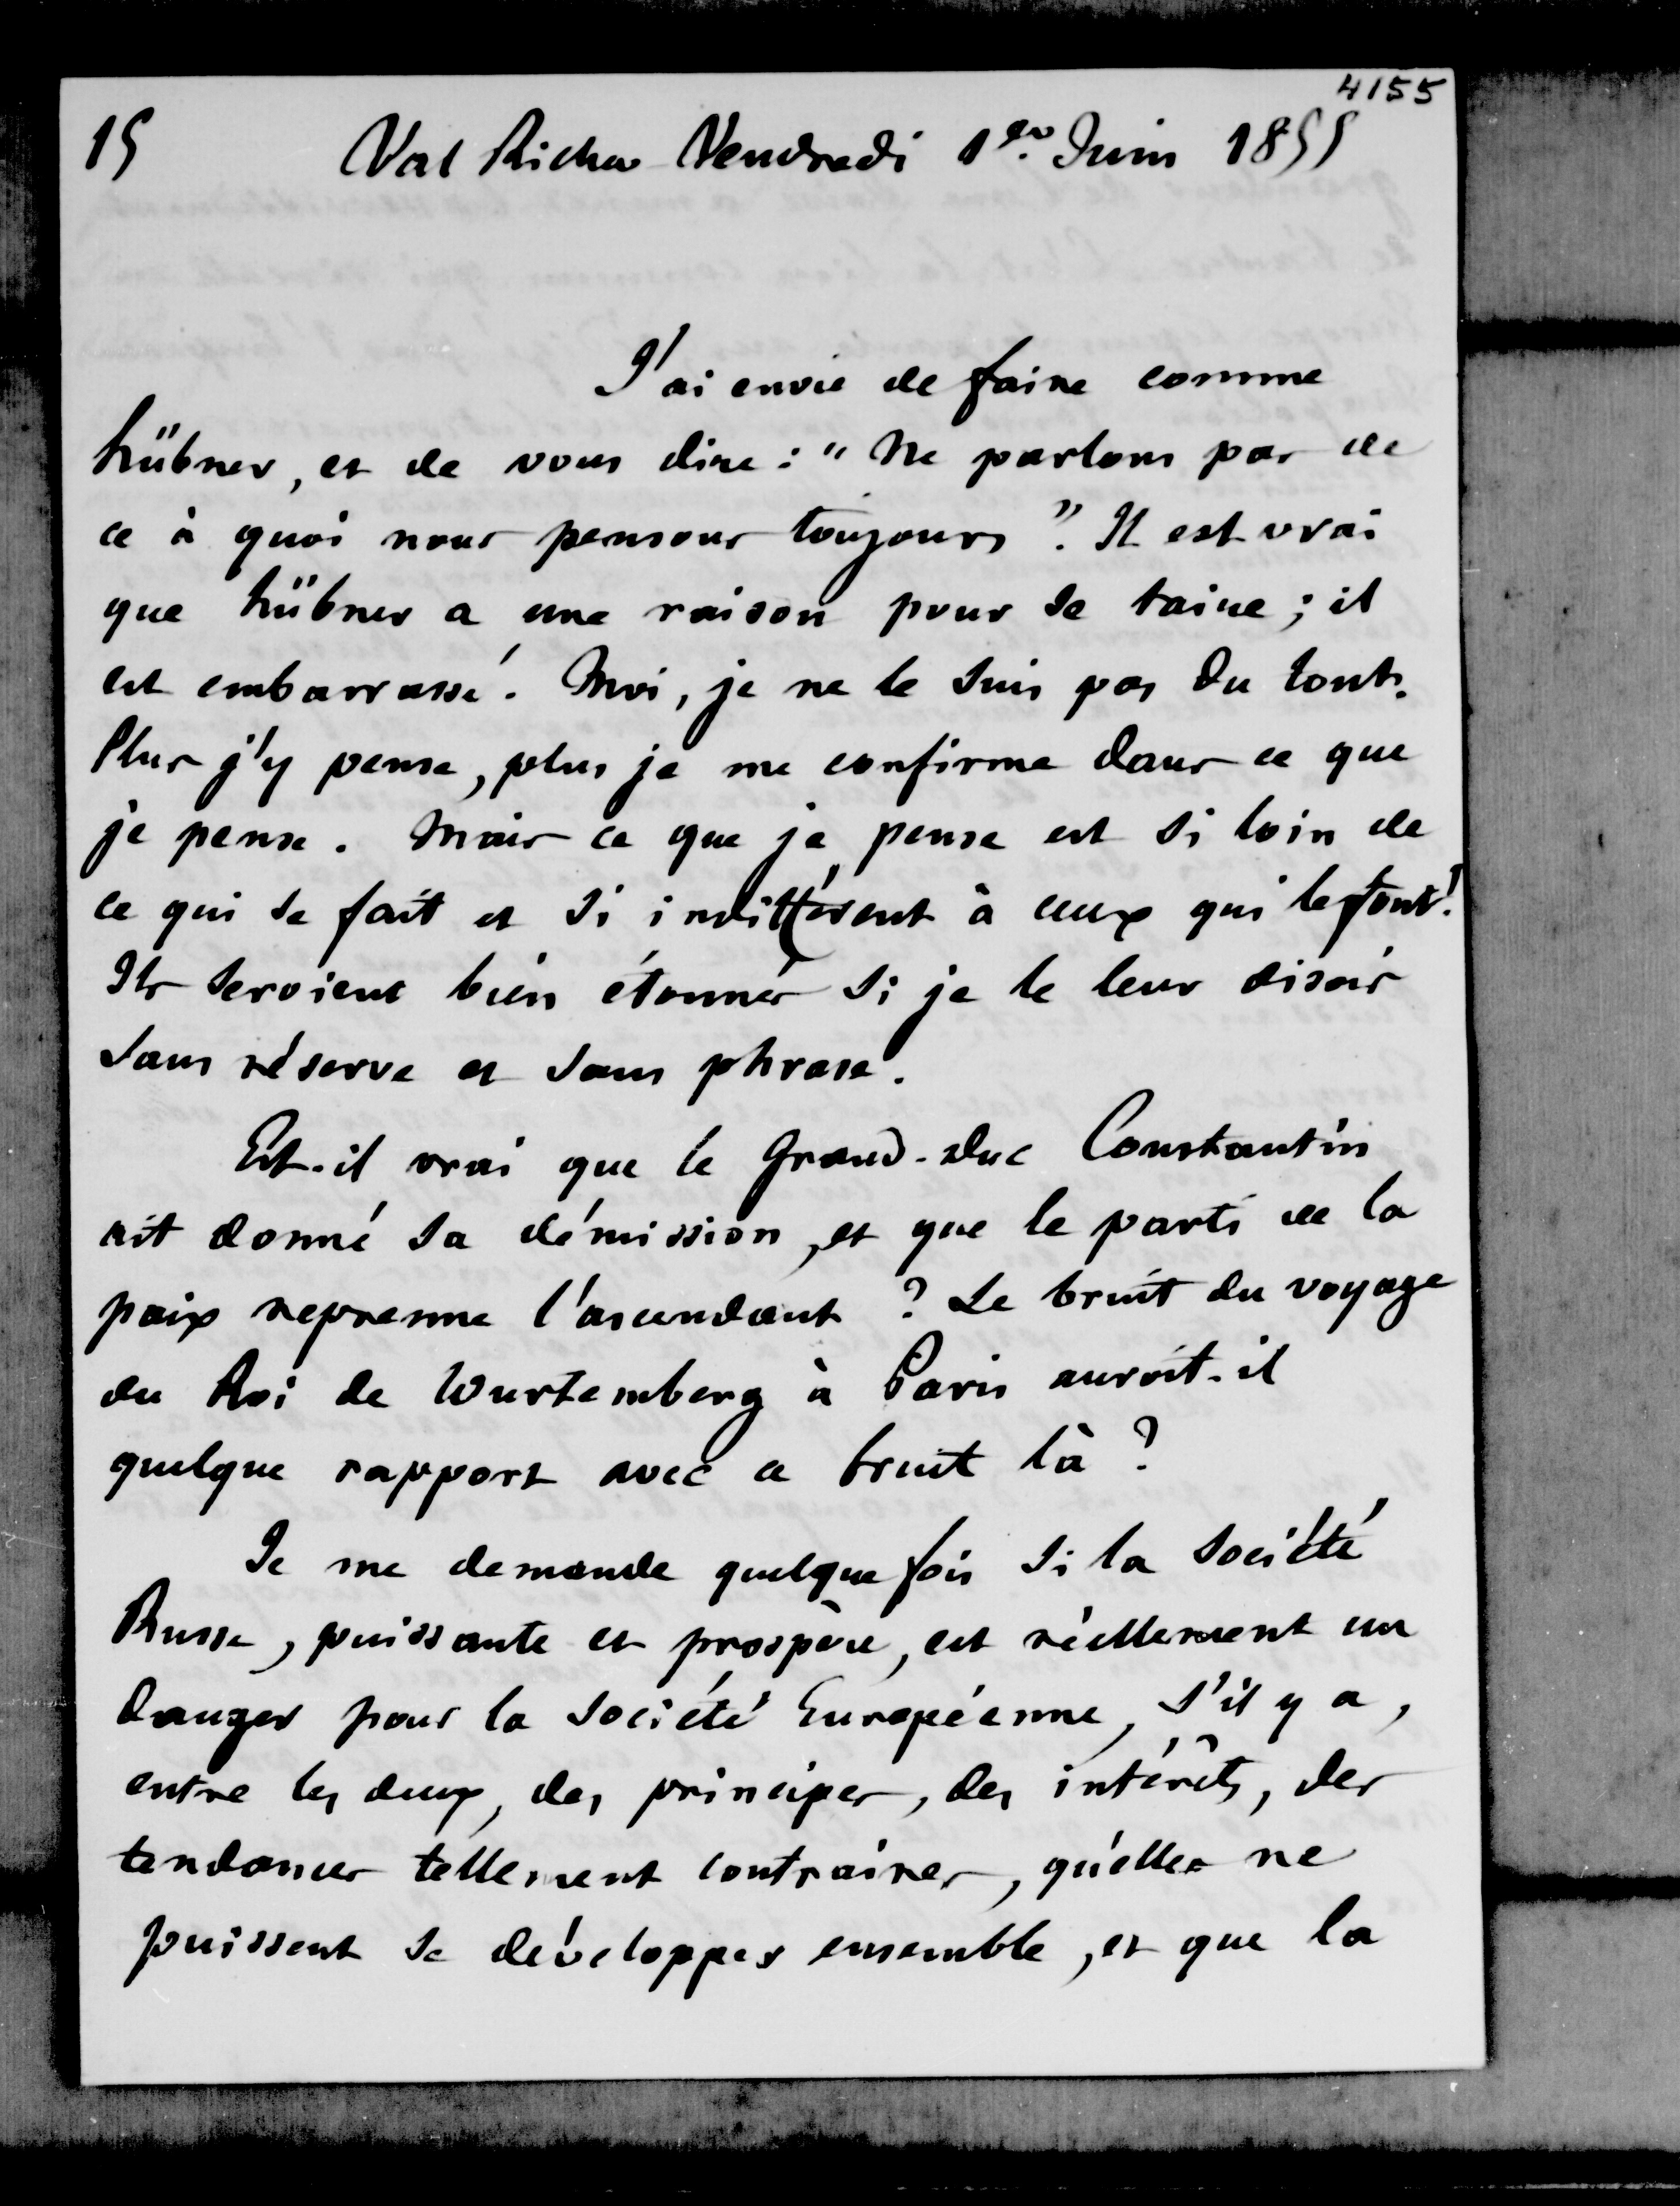 4155
15 Val Richer Vendredi 1er Juin 1855
J'ai envie de faire comme
hübner, et de vous dire : " Ne parlons pas de
ce à quoi nous pensons toujours ". Il est vrai
que hübner a une raison pour se taire ; il
est embarrassé. Moi, je ne le suis pas du tout.
Plus j'y pense, plus je me confirme dans ce que
je pense. Mais ce que je pense est si loin de
ce qui se fait et si indifférent à ceux qui le font !
Ils seroient bien étonnés si je le leur disois
sans réserve et sans phrase.
Est-il vrai que le Grand-duc Constantin
ait donné sa démission, et que le parti de la
paix reprenne l'ascendant ? Le bruit du voyage
du Roi de Wurtemberg à Paris auroit-il
quelque rapport avec ce bruit là ?
Je me demande quelque fois si la société
Russe, puissante et prospère, est réellement un
danger pour la société Européenne, s'il y a,
entre les deux, des principes, des intérêts, des
tendances tellement contraires, qu'elles ne
puissent se développer ensemble, et que la